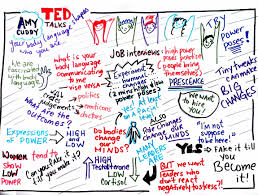 AMY CUDDY
TED TALKS
Your body language shapes who you are
We are fascinated with body language
what is your body language communicating to me vice versa
JOB interviews
high power poses
people bring themselves
PRESENCE
POWER poses!
Tiny tweaks can make BIG CHANGES
We want to hire you
WHAT ARE THE OUTCOMES?
Expressions of POWER
HIGH
LOW
Women tend to show Low POWER
Can you fake it til you make it?
Do bodies change our MINDS?
HIGH Testosterone
LOW Cortisol
Our bodies changes our MINDS
MANY LEADERS
BUT we want leaders who don't react negatively to stress!
YES
"I'm not supposed to be here"
Fake it till you Become it!